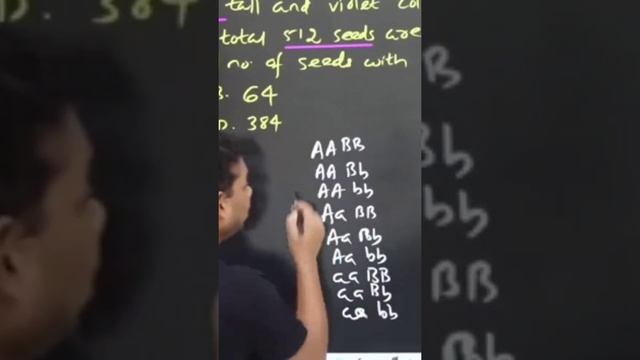 tall and violet
total 512 seeds are
no. of seeds with
B. 64
D. 384
AA BB
AA Bb
AA bb
Aa BB
Aa Bb
Aa bb
aa BB
aa Bb
aa bb